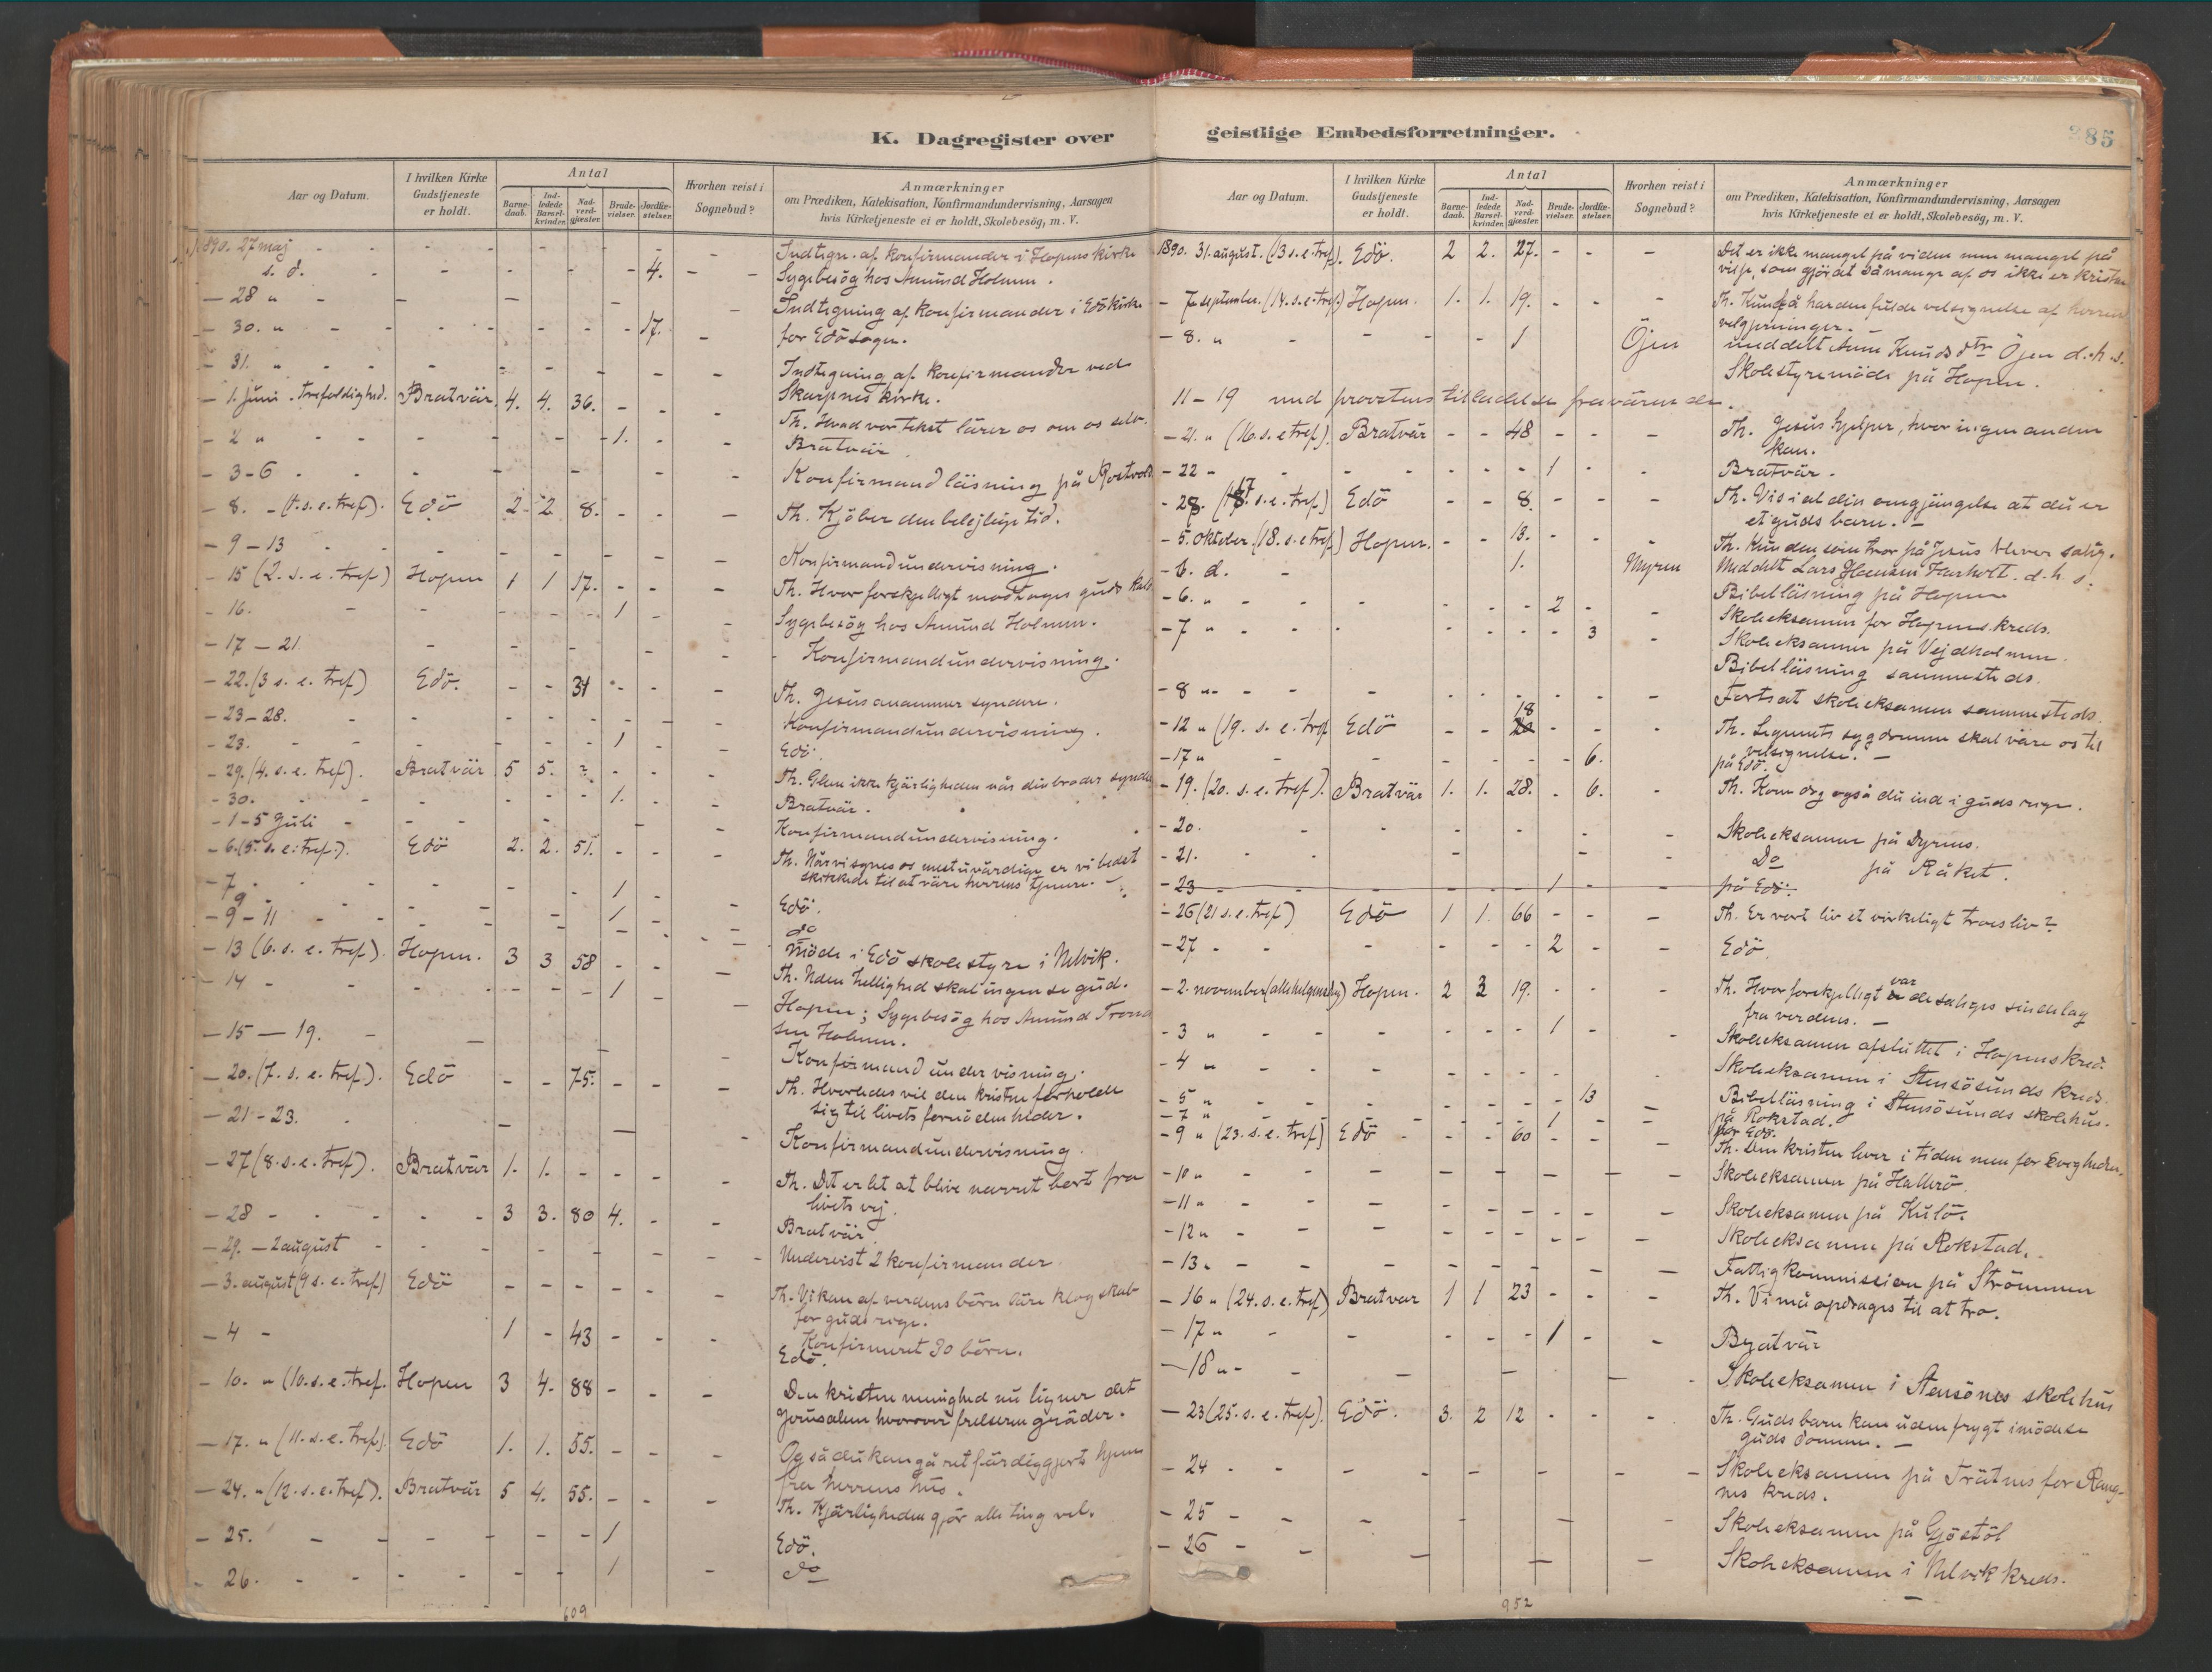 K. Dagregister over
Aar og Datum.
I hvilken Kirke
Gudstjeneste
er holdt.
Antal
Barne-
daab.
Ind-
ledede
Barsel-
kvinder.
Nad-
verd-
gjester.
Brude-
vielser.
Jordfæ-
stelser.
Hvorhen reist i
Sognebud?
Anmærkninger
om Prædiken, Katekisation, Konfirmandundervisning, Aarsagen
hvis Kirketjeneste ei er holdt, Skolebesög, m. V.
1890. 27 maj - - - - - Indtegn. af konfirmander i Hopens kirke
s. d. - - - - 4. - - Sygebesög hos Amund Holmen.
- 28 " - - - - - Indtegning af konfirmander i Edö kirke
- 30. " - - - - - 17. - for Edö sogn.
- 31. " - - - - - - Indtegning af konfirmander ved
Skarpnes kirke.
- 1. juni. Trefoldighed. Bratvär. 4. 4. 36. - - - Th. Hvad vor tekst lärer os om os selv.
- 2 " - - - - 1. - - Bratvär.
- 3-6 - - - - - - Konfirmandläsning på Rostvold
- 8. - (1. s. e. tref). Edö 2 2 8. - - - Th. Kjöber den belejlige tid.
- 9-13 - - - - - - Konfirmandundervisning.
- 15 (2. s. e. tref) Hopen 1 1 17. - - - Th. Hvor forskjelligt modtages guds kald
- 16. - - - - 1 - - Sygebesög hos Amund Holmen.
- 17 - 21. - - - - - - - Konfirmandundervisning.
- 22. (3 s. e. tref) Edö. - - 31 - - - Th. Jesus anammer syndere.
- 23-28. - - - - - - - Konfirmandundervisning.
- 23. - - - - 1 - - Edö.
- 29. (4. s. e. tref). Bratvär 5 5. ? - - - Th. Glem ikke kjärligheden når din broder synder
- 30. - - - - 1. - - Bratvär.
- 1-5 Juli - - - - - - Konfirmandundervisning.
- 6. (5. s. e. tref.). Edö 2. 2. 51. - - - Th. Når vi synes os mest uvärdige er vi bedst
skikkede til at väre herrens tjenere. -
- 7 - - - - 1 - - Edö.
- 9 - - - - 1 - - do
- 9-11 - - - - - - Möde i Edö skolestyre i Nelvik.
- 13 (6. s. e. tref). Hopen. 3 3 58 - - - Th. Uden hellighed skal ingen se gud.
- 14 - - - - 1 - - Hopen; Sygebesög hos Amund Trond
sen Holmen.
- 15 - 19. - - - - Konfirmandundervisning.
- 20. (7. s. e. tref.). Edö - - 75. - - - Th. Hvorledes vil den kristne forholde
sig til livets fornödenheder.
- 21-23. - - - - Konfirmandundervisning.
- 27 (8. s. e. tref). Bratvär 1. 1. - - - - Th. Det er let at blive narret bort fra
livets vej.
- 28 - - - 3 3. 80 4. - - Bratvär.
- 29. - 2 august - - - - - - Undervist 2 konfirmander
- 3. august (9 s. e. tref) Edö - - - - - - Th. Vi kan af verdens börn läre klogskab
for guds rige.
- 4 - 1 - 43 - - - Konfirmeret 30 börn.
Edö.
- 10. " (10. s. e. tref. Hopen 3 4. 88 - - - Den kristne menighed nu ligner det
Jerusalem hvorover frelseren gräder.
- 17. " (11. s. e. tref). Edö 1. 1. 55. - - - Også du kan gå retfärdiggjort hjem
fra herrens hus.
- 24. " (12. s. e. tref). Bratvär 5 4. 55. - - - Th. Kjärligheden gjör alle ting vel.
- 25. - - - - 1 Edö.
- 26. - - - - 1 - do
609
geistlige Embedsforretninger.
285
Aar og Datum.
I hvilken Kirke
Gudstjeneste
er holdt.
Antal
Barne-
daab.
Ind-
ledede
Barsel-
kvinder.
Nad-
verd-
gjester.
Brude-
vielser.
Jordfæ-
stelser.
Hvorhen reist i
Sognebud?
Anmærkninger
om Prædiken, Katekisation, Konfirmandundervisning, Aarsagen
hvis Kirketjeneste ei er holdt, Skolebesög, m. V.
1890. 31. august. (13 s. e. tref). Edö. 2 2. 27. - - - Det er ikke mangel på viden men mangel på
vilje, som gjör det så mange af os ikke er kristne
- 7 september. (14. s. e. tref.) Hopen. 1. 1. 19. - - - Th. Kun få har den fulde velsignelse af herrens
velgjerninger. -
- 8. " - - - 1 Öjen meddelt Anne Knudsdtr Öjen d. h. s.
Skolestyremöde på Hopen.
11-19 med provstens tilladelse fraværende.
- 21. " (16. s. e. tref). Bratvär - - 48 - - - Th. Jesus hjelper, hvor ingen anden
kan.
- 22 " - - - - 1 - - Bratvär.
- 28. (17. s. e. tref) Edö - - 8. - - - Th. Vis i al din omgjängelse at du er
et guds barn. -
- 5. oktober. (18. s. e. tref) Hopen. - - 13. - - - Th. Kun den som tror på Jesus bliver salig.
- 6. d. - 1. Myren Meddelt Lars Hansen Farholt. d. h. s.
- 6. " - - - - 2 - - Bibelläsning på Hopen
Skoleeksamen for Hopens kreds.
- 7 " - - - - - 3 - Skoleeksamen på Vejdholmen.
Bibelläsning sammesteds.
- 8 " - - - - - - - Fortsat skoleeksamen sammesteds.
- 12 " (19. s. e. tref Edö - - 18 - - - Th. Legemets sygdomme skal väre os til
velsignelse. -
- 17 " - - - - - 6. på Edö.
- 19. (20. s. e. tref). Bratvär 1. 1. 28. - 6. - Th. Kom dog også du ind i guds rige.
- 20. - - - - - Skoleeksamen på Dyrnes.
- 21. - - - - - Do på Råket.
- 23 - - - 1 - - på Edö.
- 26 (21 s. e. tref) Edö 1 1. 66 - - - Th. Er vort liv et virkeligt troesliv?
- 27 - - - - - 2 - - Edö.
- 2. november (allehelgensdag) Hopen. 2 3 19. - - - Th. Hvor forskjelligt var de saliges sindelag
fra verdens. -
- 3 " - - - - 1 - - Skoleeksamen afsluttet i Hopens kred.
- 4 " - - - - - - - Skoleeksamen i Stensösunds kreds.
- 5 " - - - - - 13 - Bibelläsning i Stensösunds skolehus.
på Rokstad.
- 7 " - - - - 1 - - på Edö.
- 9 " (23. s. e. tref) Edö - - - 60 - - - Th. Den kristne lever i tiden men for Evigheden.
- 10 " - - - - - - Skoleeksamen på Hallerö.
- 11 " - - - - - - Skoleeksamen på Kulö.
- 12 " - - - - - - Skoleeksamen på Rokstad.
- 13. - - - - - - Fattigkommission på Strömmen
- 16 " (24. s. e. tref) Bratvar 1 1 23 - - - Th. Vi må opdrages til at tro.
- 17 " - - - - 1 - - Bratvär
- 18 " - - - - - - Skoleeksamen i Stensönes skolehus
- 23 (25. s. e. tref). Edö. 3. 2 12 - - - Th. Guds barn kan uden frygt imödese
guds dommen. -
- 24 - - - - - - Skoleeksamen på Trätnes for Rang-
nes kreds.
- 25 - - - - - - Skoleeksamen på Gjöstöl
- 26 - - - - - Skoleeksamen i Nelvik kreds.
952